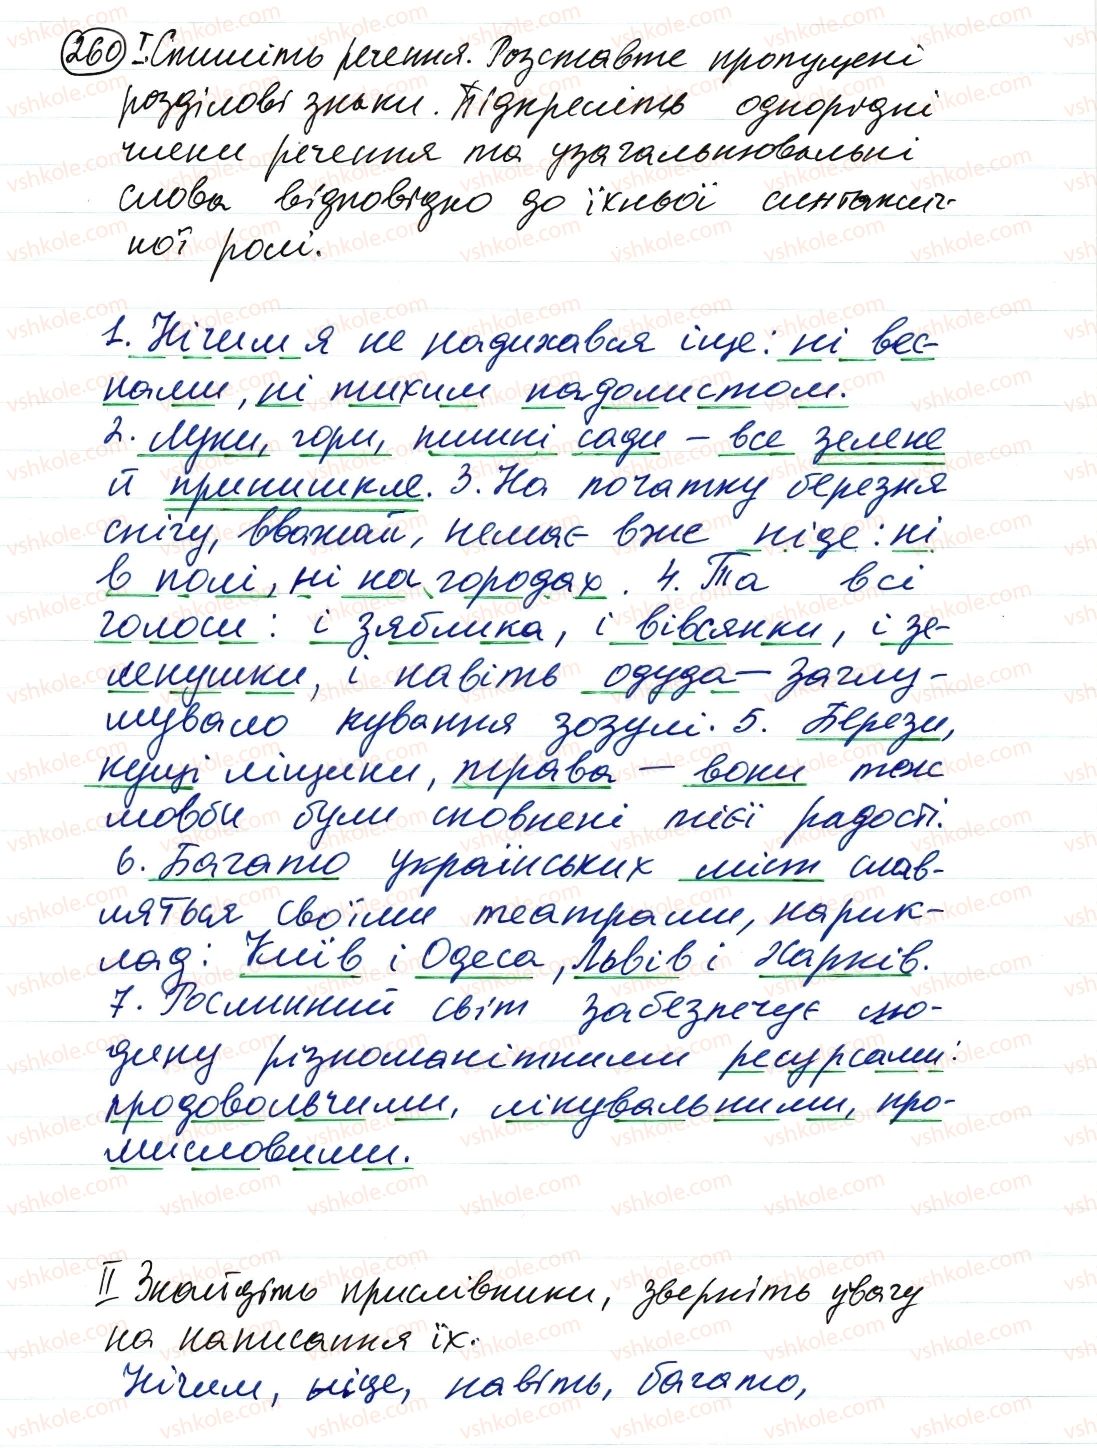 260 I. Спишіть речення. Розставте пропущені
розділові знаки. Підкресліть однорідні
члени речення та узагальнювальні
слова відповідно до їхньої синтаксич-
ної ролі.
1. Нічим я не надихався іще: ні вес-
нами, ні тихим падолистом.
2. Луки, гори, пишні сади – все зелене
й принишкле. 3. На початку березня
снігу, вважай, немає вже ніде: ні
в полі, ні на городах. 4. Та всі
голоси: і зяблика, і вівсянки, і зе-
ленушки, і навіть одуда – заглу-
шувало кування зозулі. 5. Берези,
кущі ліщини, трава – вони теж
мовби були сповнені тієї радості.
6. Багато українських міст слав-
ляться своїми театрами, наприк-
лад: Київ і Одеса, Львів і Харків.
7. Рослинний світ забезпечує лю-
дину різноманітними ресурсами:
продовольчими, лікувальними, про-
мисловими.
II Знайдіть прислівники, зверніть увагу
на написання їх.
Нічим, ніде, навіть, багато,